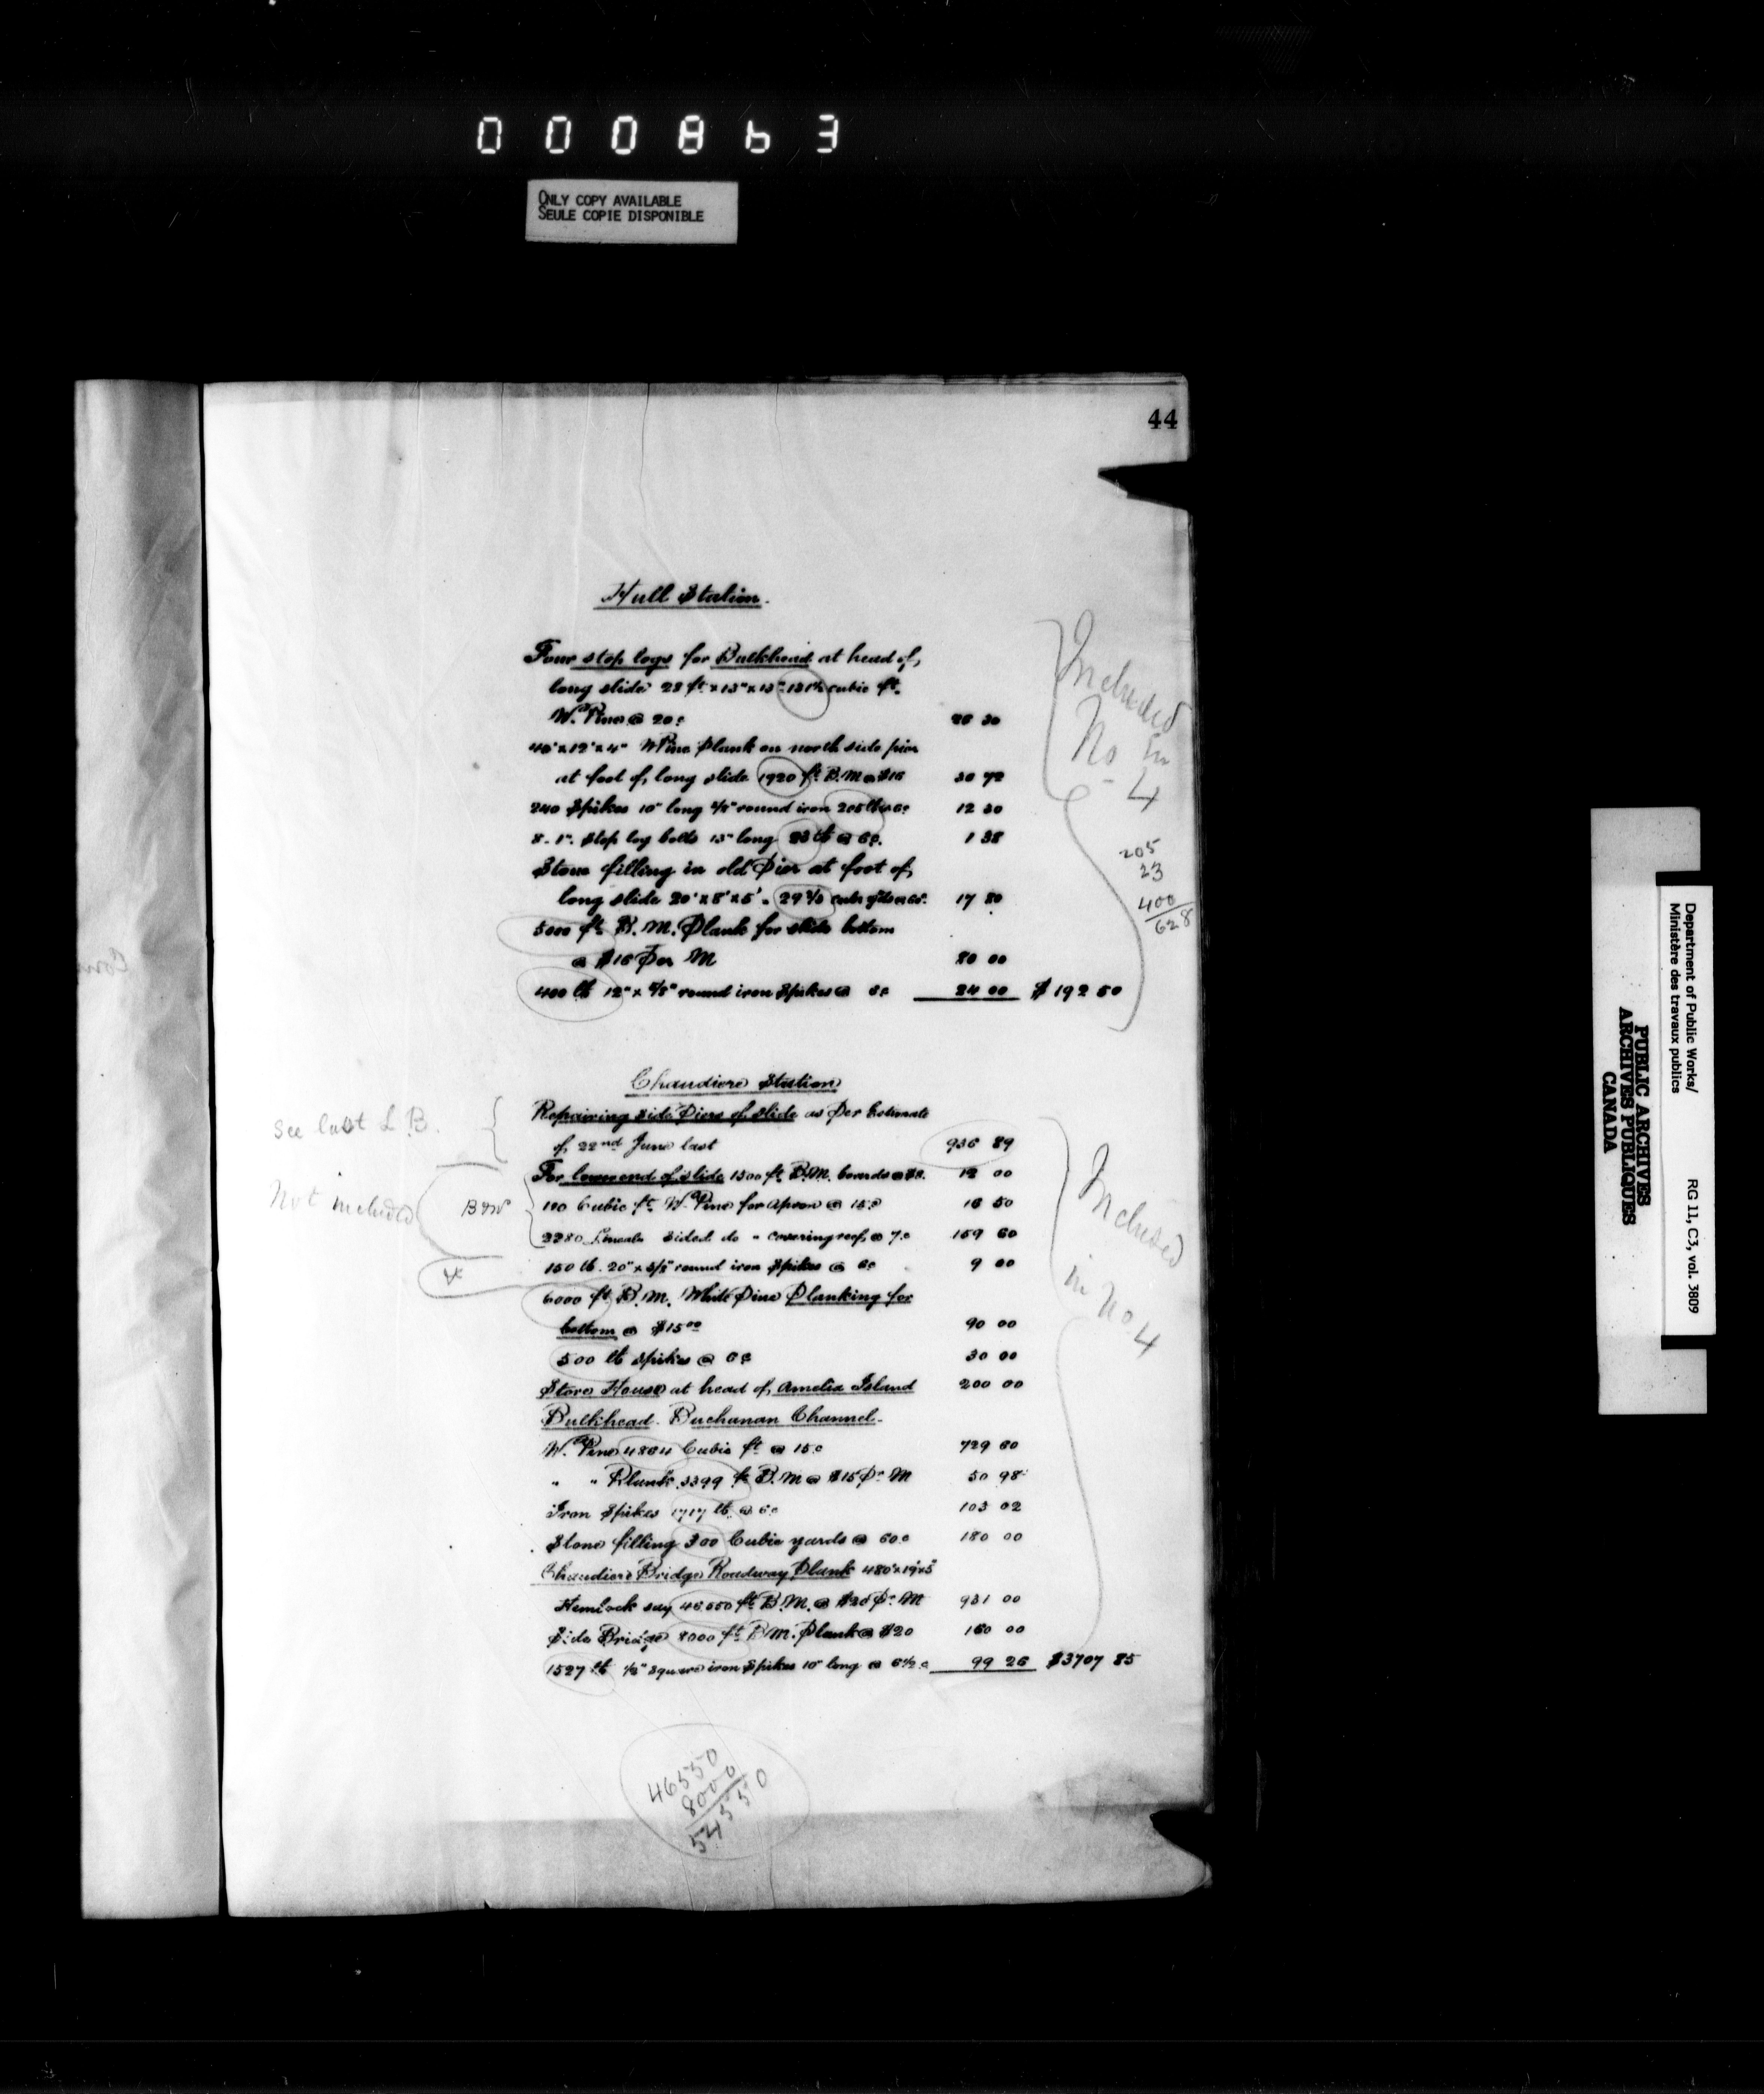 000863
ONLY COPY AVAILABLE
SEULE COPIE DISPONIBLE
44
Hull Station.
Four stop logs for Bulkhead at head of
long slide 28 ft. x 13" x 13" 131½ cubic ft.
W. Pine @ 20c 26 30
40' x 12' x 4" W Pine Plank on north side pier
at foot of long slide 1920 ft. B.M @ $16 30 72
240 Spikes 10" long 5/8" round iron 205 lb @ 6c 12 30
8 - 1" Stop log bolts 13" long 23 lb @ 6c. 1 38
Stone filling in old Pier at foot of
long slide 20' x 8' x 5' = 29 2/3 cubic yds @ 60c. 17 80
5000 ft. B. M. Plank for slide bottom
@ $16 Per M 80 00
400 lb 12" x 5/8" round iron Spikes @ 6c 24 00 $192 50
Included
No in
- 4
205
23
400
628
Chaudiere Station
Repairing side Piers of slide as Per Estimate
of 22nd June last 936 89
see last L.B.
For lower end of slide 1500 ft. B.M. boards @ $8. 12 00
110 Cubic ft. W. Pine for Apron @ 15c 16 50
2280 Lineal sided do " covering @ 7c 159 60
Not included
150 lb. 20" x 5/8" round iron Spikes @ 6c 9 00
6000 ft B.M. White Pine Planking for
bottom @ $15.00 90 00
500 lb Spikes @ 6c 30 00
Store House at head of Amelia Island 200 00
Bulkhead. Buchanan Channel.
W. Pine 4864 Cubic ft @ 15c 729 60
" " Plank 3399 ft. B.M @ $15 Pr. M 50 98
Iron Spikes 1717 lb. @ 6c 103 02
Stone filling 300 Cubic yards @ 60c 180 00
Chaudiere Bridge Roadway Plank 480' x 19' x 5"
Hemlock say 46.550 ft B.M. @ $20 Pr. M 931 00
Side Bridge 8000 ft B.M. Plank @ $20 160 00
1527 lb ½" square iron Spikes 10" long @ 6½c 99 26 $3707 85
Included
in No 4
46550
8000
54550
Department of Public Works/
Ministère des travaux publics
RG 11, C3, vol. 3809
PUBLIC ARCHIVES
ARCHIVES PUBLIQUES
CANADA